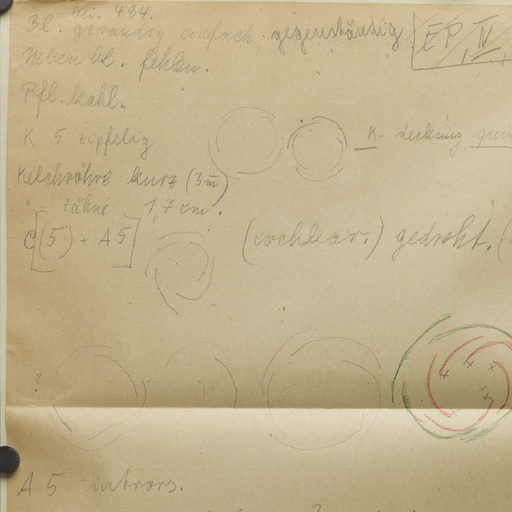 bei. 434.
Bl. ganzrandig einfach. gegenständig EP, IV,
Neben bl. fehlen.
Pfl. kahl.
K 5 zipfelig
K - deckung quin
Kelchröhre kurz (3 m̄)
" zähne 1,7 cm.
C[(5) + A 5]
(cochlear.) gedreht. (
?
A 5 intrors.